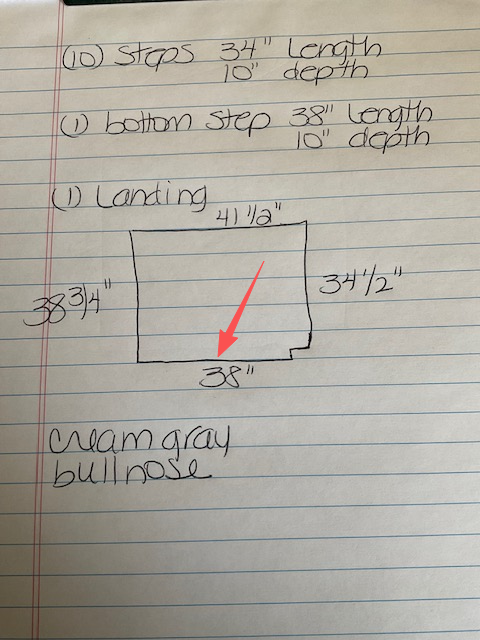 (10) Steps 34" Length
10" depth
(1) bottom step 38" Length
10" depth
(1) Landing
41 1/2"
38 3/4"
34 1/2"
38"
cream gray
bullnose